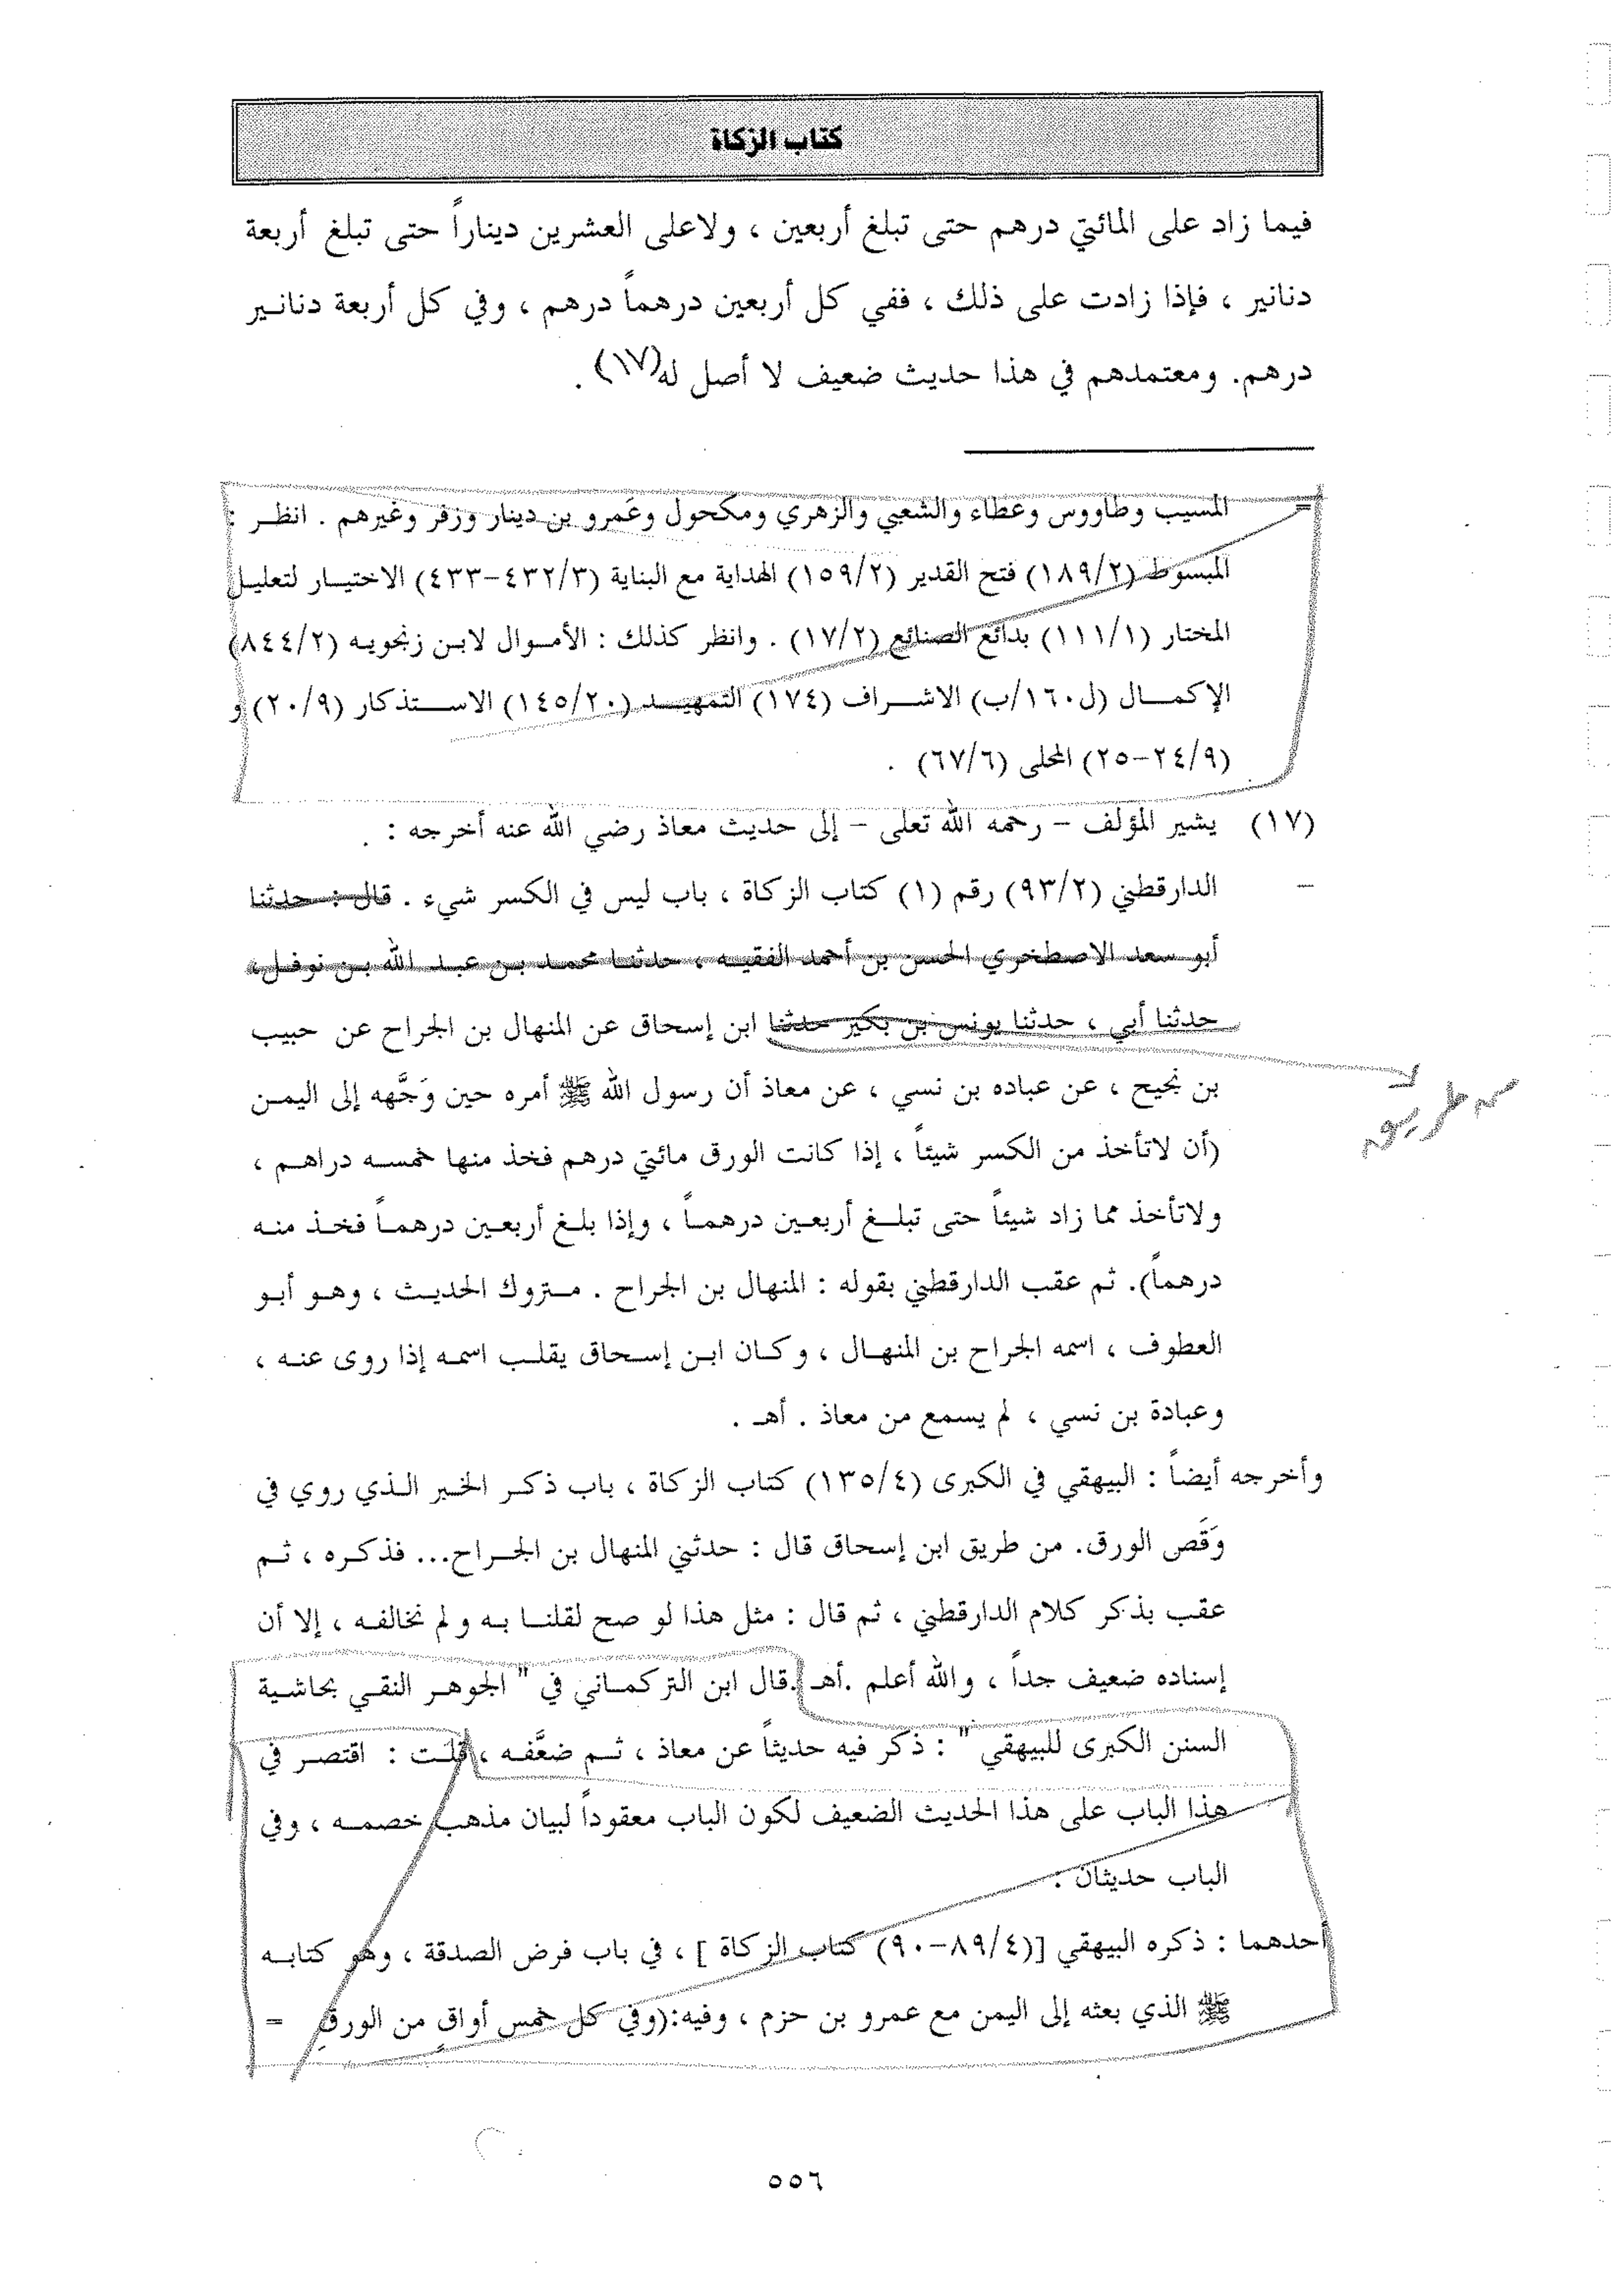 كتاب الزكاة
فيما زاد على المائتي درهم حتى تبلغ أربعين ، ولاعلى العشرين ديناراً حتى تبلغ أربعة
دنانير ، فإذا زادت على ذلك ، ففي كل أربعين درهماً درهم ، وفي كل أربعة دنانير
درهم. ومعتمدهم في هذا حديث ضعيف لا أصل له(١٧) .
= المسيب وطاووس وعطاء والشعبي والزهري ومكحول وعَمرو بن دينار وزفر وغيرهم . انظر :
المبسوط (١٨٩/٢) فتح القدير (١٥٩/٢) الهداية مع البناية (٤٣٢/٣-٤٣٣) الاختيار لتعليل
المختار (١١١/١) بدائع الصنائع (١٧/٢) . وانظر كذلك : الأموال لابن زنجويه (٨٤٤/٢)
الإكمال (ل١٦٠/ب) الاشراف (١٧٤) التمهيد (١٤٥/٢٠) الاستذكار (٢٠/٩) و
(٢٤/٩-٢٥) المحلى (٦٧/٦) .
(١٧) يشير المؤلف – رحمه الله تعلى – إلى حديث معاذ رضي الله عنه أخرجه :
– الدارقطني (٩٣/٢) رقم (١) كتاب الزكاة ، باب ليس في الكسر شيء . قال : حدثنا
أبو سعد الاصطخري الحسن بن أحمد الفقيه ، حدثنا محمد بن عبد الله بن نوفل،
حدثنا أبي ، حدثنا يونس بن بكير حدثنا ابن إسحاق عن المنهال بن الجراح عن حبيب
من طريق
بن نجيح ، عن عباده بن نسي ، عن معاذ أن رسول الله ﷺ أمره حين وَجَّهه إلى اليمن
(أن لاتأخذ من الكسر شيئاً ، إذا كانت الورق مائتي درهم فخذ منها خمسه دراهم ،
ولاتأخذ مما زاد شيئاً حتى تبلغ أربعين درهماً ، وإذا بلغ أربعين درهماً فخذ منه
درهماً). ثم عقب الدارقطني بقوله : المنهال بن الجراح . متروك الحديث ، وهو أبو
العطوف ، اسمه الجراح بن المنهال ، وكان ابن إسحاق يقلب اسمه إذا روى عنه ،
وعبادة بن نسي ، لم يسمع من معاذ . أهـ .
وأخرجه أيضاً : البيهقي في الكبرى (١٣٥/٤) كتاب الزكاة ، باب ذكر الخبر الذي روي في
وَقَص الورق. من طريق ابن إسحاق قال : حدثني المنهال بن الجراح... فذكره ، ثم
عقب بذكر كلام الدارقطني ، ثم قال : مثل هذا لو صح لقلنا به ولم نخالفه ، إلا أن
إسناده ضعيف جداً ، والله أعلم .أهـ .قال ابن التركماني في " الجوهر النقي بحاشية
السنن الكبرى للبيهقي " : ذكر فيه حديثاً عن معاذ ، ثم ضعَّفه ، قلت : اقتصر في
هذا الباب على هذا الحديث الضعيف لكون الباب معقوداً لبيان مذهب خصمه ، وفي
الباب حديثان :
أحدهما : ذكره البيهقي [(٨٩/٤-٩٠) كتاب الزكاة ] ، في باب فرض الصدقة ، وهو كتابه
ﷺ الذي بعثه إلى اليمن مع عمرو بن حزم ، وفيه:(وفي كل خمس أواقٍ من الورقِ =
٥٥٦